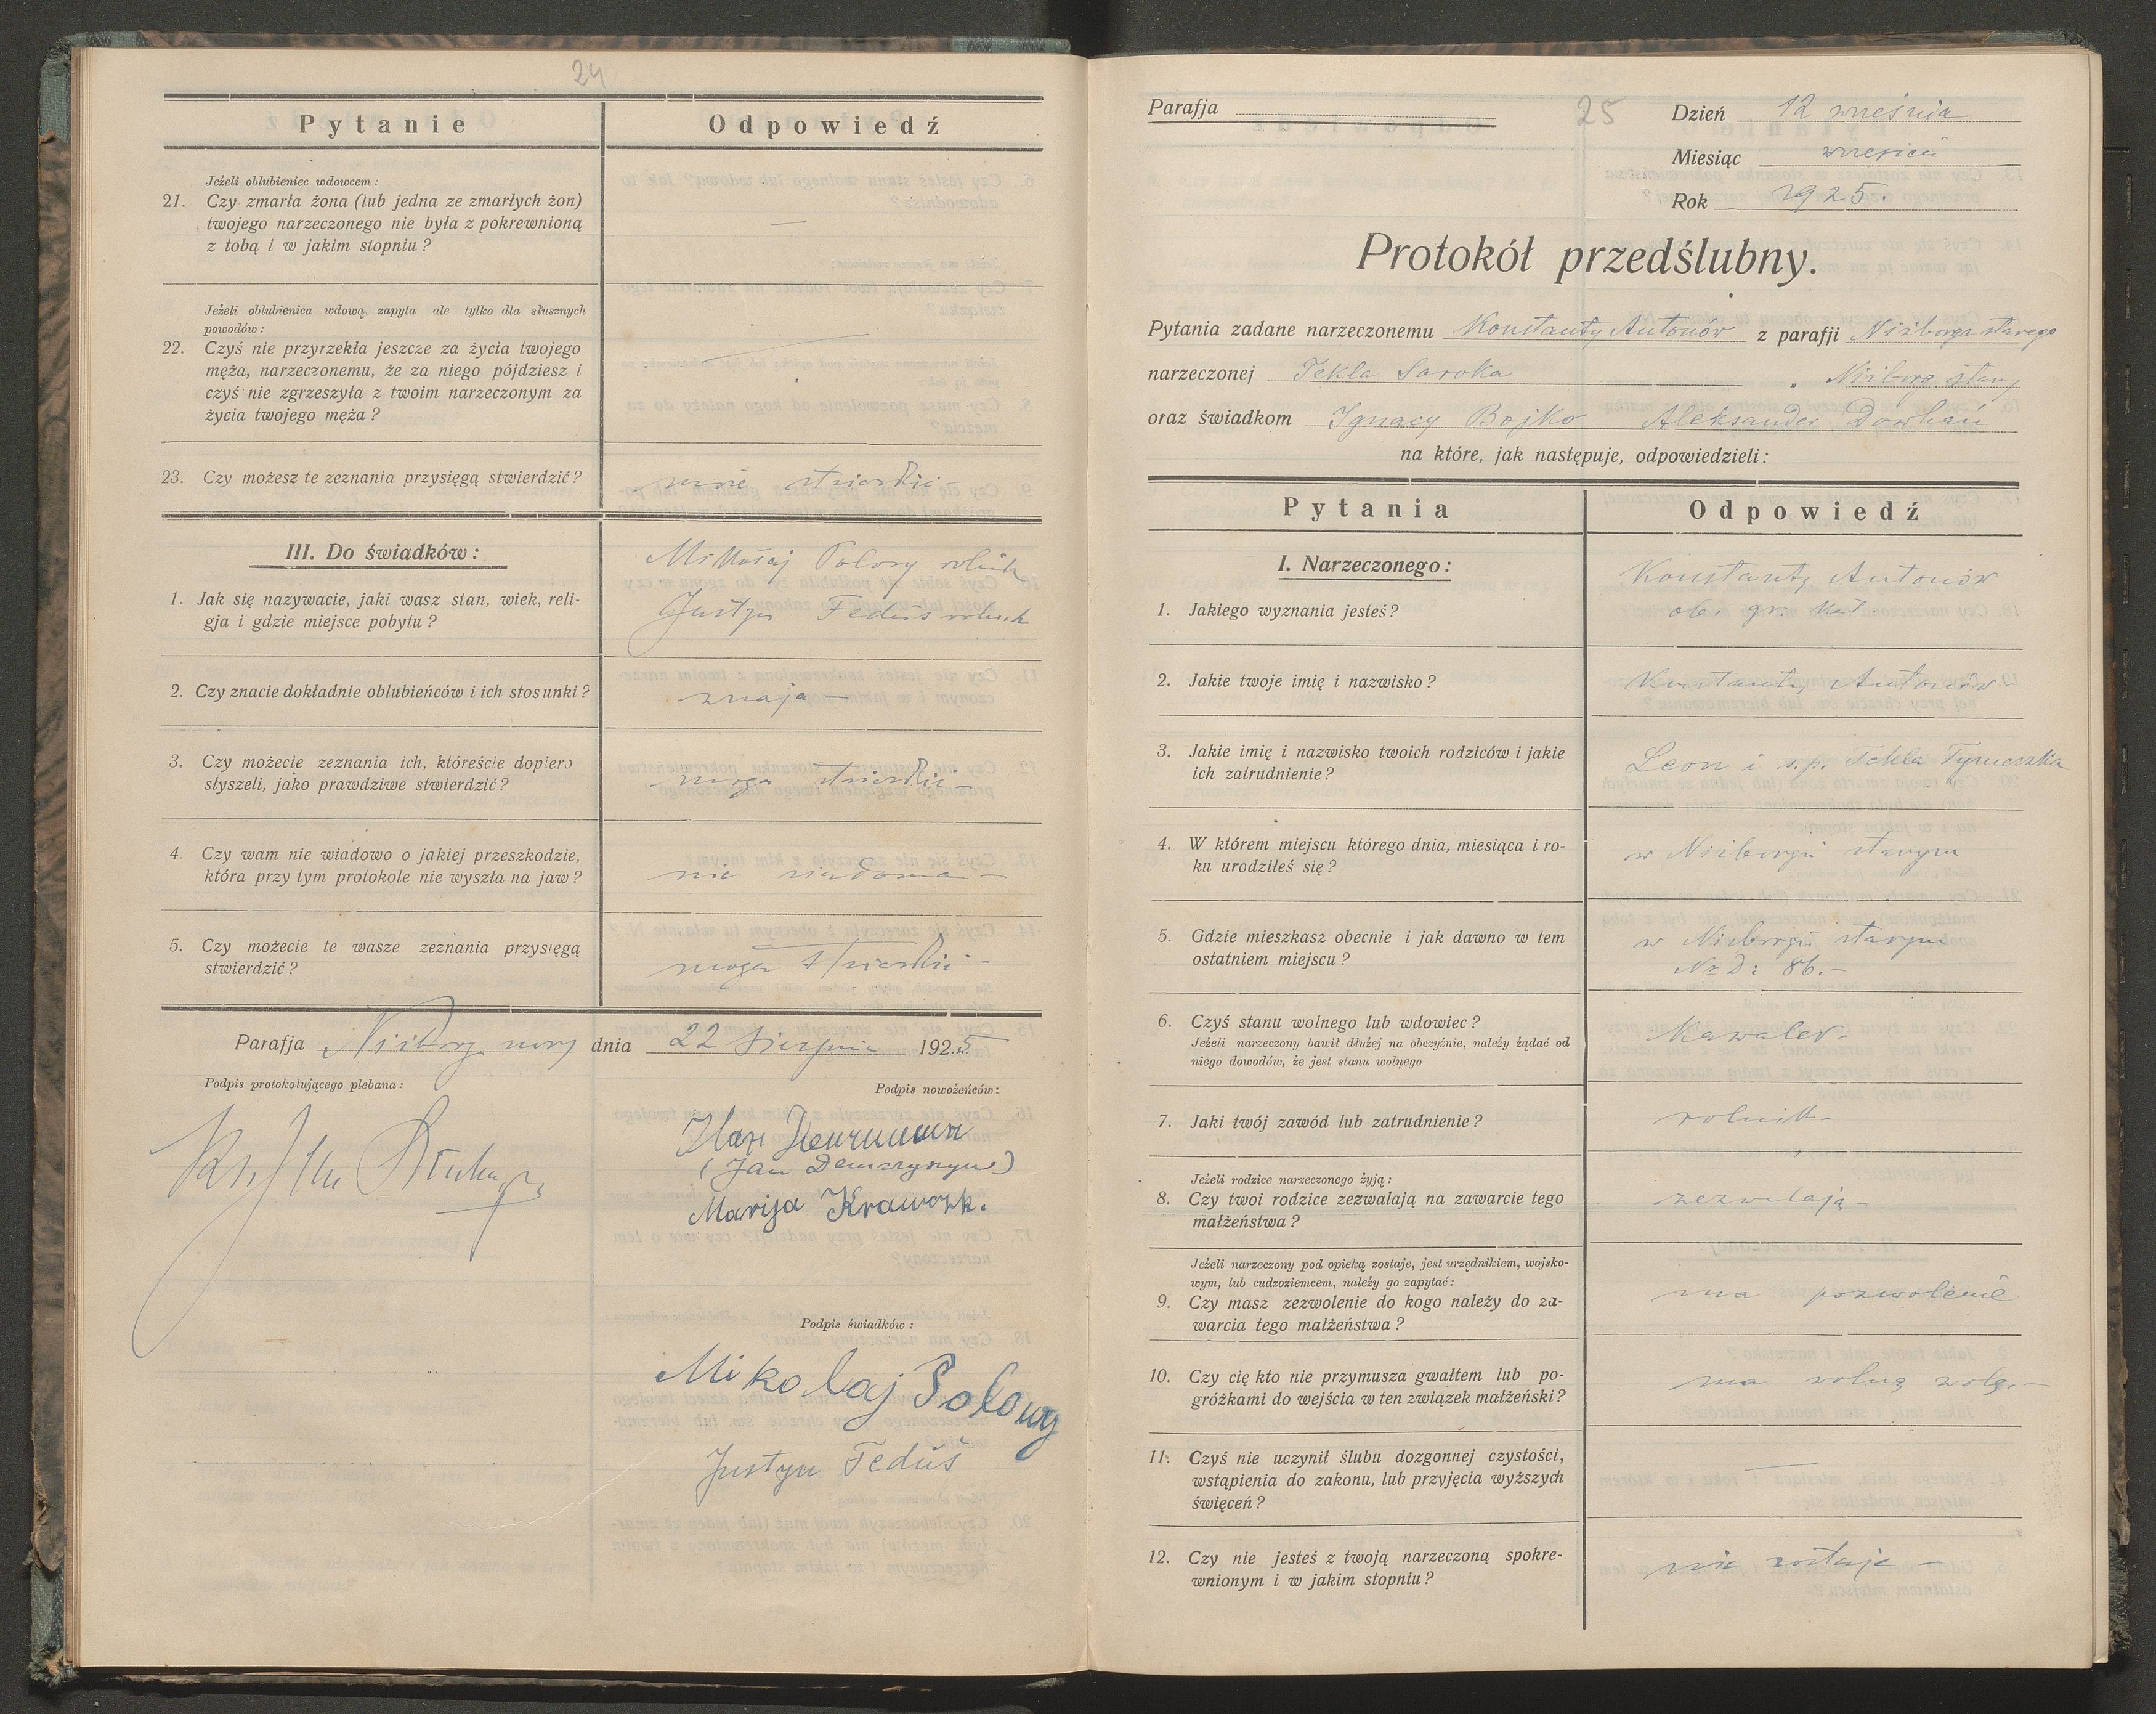 24
Pytanie
Odpowiedź
Jeżeli oblubieniec wdowcem:
21. Czy zmarła żona (lub jedna ze zmarłych żon)
twojego narzeczonego nie była z pokrewnioną
z tobą i w jakim stopniu?
—
Jeżeli oblubienica wdową, zapyta ale tylko dla słusznych
powodów:
22. Czyś nie przyrzekła jeszcze za życia twojego
męża, narzeczonemu, że za niego pójdziesz i
czyś nie zgrzeszyła z twoim narzeczonym za
życia twojego męża?
—
23. Czy możesz te zeznania przysięgą stwierdzić?
III. Do świadków:
Mikołaj Polowy rolnik
1. Jak się nazywacie, jaki wasz stan, wiek, reli-
gja i gdzie miejsce pobytu?
Justyn Feduś rolnik
2. Czy znacie dokładnie oblubieńców i ich stosunki?
znają —
3. Czy możecie zeznania ich, któreście dopiero
słyszeli, jako prawdziwe stwierdzić?
mogą stwierdzić —
4. Czy wam nie wiadowo o jakiej przeszkodzie,
która przy tym protokole nie wyszła na jaw?
nie wiadoma —
5. Czy możecie te wasze zeznania przysięgą
stwierdzić?
mogą stwierdzić —
Parafja Niżborg nowy dnia 22 sierpnia 1925
Podpis protokołującego plebana:
Podpis nowożeńców:
(Jan Demczyszyn)
Marija Krawczk.
Podpis świadków:
Mikolaj Polowy
Justyn Feduś
Parafja
25
Dzień 12 września
Miesiąc wrzesień
Rok 1925.
Protokół przedślubny.
Pytania zadane narzeczonemu Konstanty Antonów z parafji Niżborga starego
narzeczonej Tekla Saroka „ Niżborg stary
oraz świadkom Ignacy Bojko Aleksander Dowhań
na które, jak następuje, odpowiedzieli:
Pytania
Odpowiedź
I. Narzeczonego:
Konstanty Antonów
1. Jakiego wyznania jesteś?
ob. gr. kat.
2. Jakie twoje imię i nazwisko?
Konstanty Antonów —
3. Jakie imię i nazwisko twoich rodziców i jakie
ich zatrudnienie?
Leon i s.p. Tekla Tymeczka
4. W którem miejscu którego dnia, miesiąca i ro-
ku urodziłeś się?
w Niżborgu starym
5. Gdzie mieszkasz obecnie i jak dawno w tem
ostatniem miejscu?
w Niżborgu starym
Nr D: 86. —
6. Czyś stanu wolnego lub wdowiec?
Jeżeli narzeczony bawił dłużej na obczyźnie, należy żądać od
niego dowodów, że jest stanu wolnego
Kawaler.
7. Jaki twój zawód lub zatrudnienie?
rolnik —
Jeżeli rodzice narzeczonego żyją:
8. Czy twoi rodzice zezwalają na zawarcie tego
małżeństwa?
zezwalają —
Jeżeli narzeczony pod opieką zostaje, jest urzędnikiem, wojsko-
wym, lub cudzoziemcem, należy go zapytać:
9. Czy masz zezwolenie do kogo należy do za-
warcia tego małżeństwa?
ma pozwolenie
10. Czy cię kto nie przymusza gwałtem lub po-
gróżkami do wejścia w ten związek małżeński?
ma wolną wolę. —
11. Czyś nie uczynił ślubu dozgonnej czystości,
wstąpienia do zakonu, lub przyjęcia wyższych
święceń?
—
12. Czy nie jesteś z twoją narzeczoną spokre-
wnionym i w jakim stopniu?
nie zostaje —